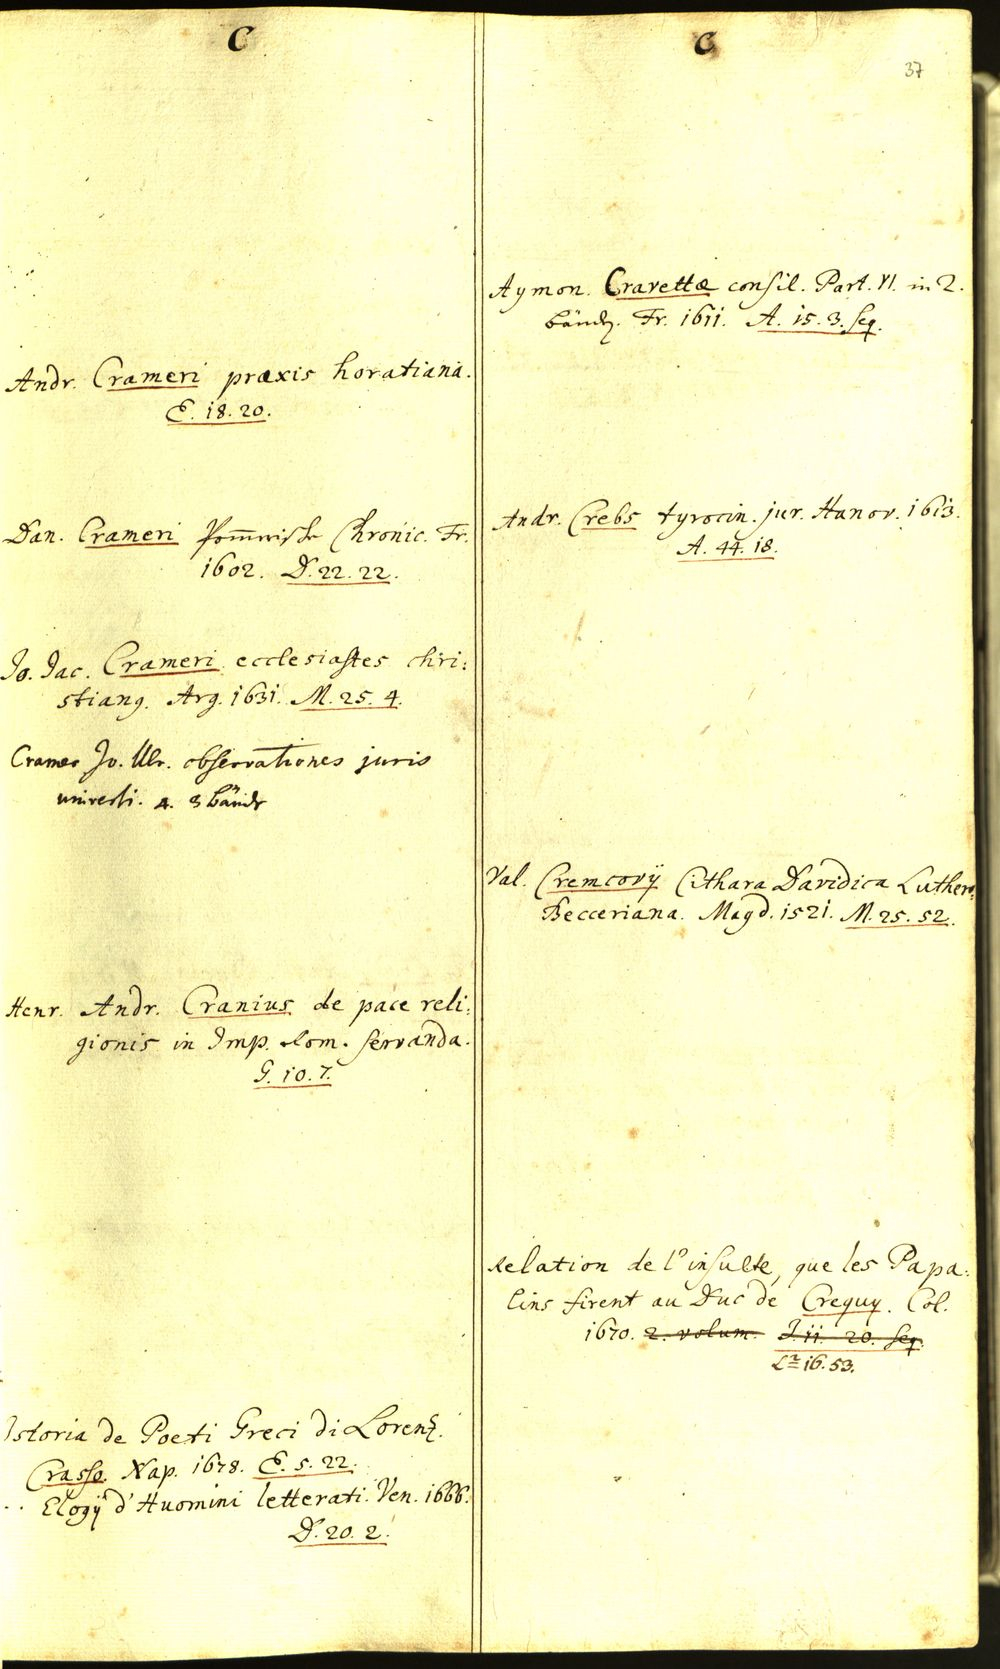 C
Andr. Crameri praxis horatiana.
E. 18. 20.
Dan. Crameri Pom̄erische Chronic. Fr.
1602. D. 22. 22.
Jo. Jac. Crameri ecclesiastes chri:
stiang. Arg. 1631. M. 25. 4.
Cramer Jo. Ulr. observationes juris
universi. 4. 3 bände
Henr. Andr. Cranius de pace reli:
gionis in Imp. Rom. servanda.
G. 10. 7.
Istoria de Poeti Greci di Lorenz.
Crasso. Nap. 1678. E. 5. 22.
.. Elogÿ d'Huomini letterati. Ven. 1666.
D. 20. 2.
C
37
Aymon. Cravettæ consil. Part. VI. in 2.
bänd. Fr. 1611. A. 15. 3. seq.
Andr. Crebs tyrocin. jur. Hanov. 1613.
A. 44. 18.
Val. Cremcovÿ Cithara Davidica Luthero:
Becceriana. Magd. 1521. M. 25. 52.
Relation de l'insulte, que les Papa:
lins firent au Duc de Crequy. Col.
1670. 2. volum. J. 11. 20. seq.
Lr 16. 53.